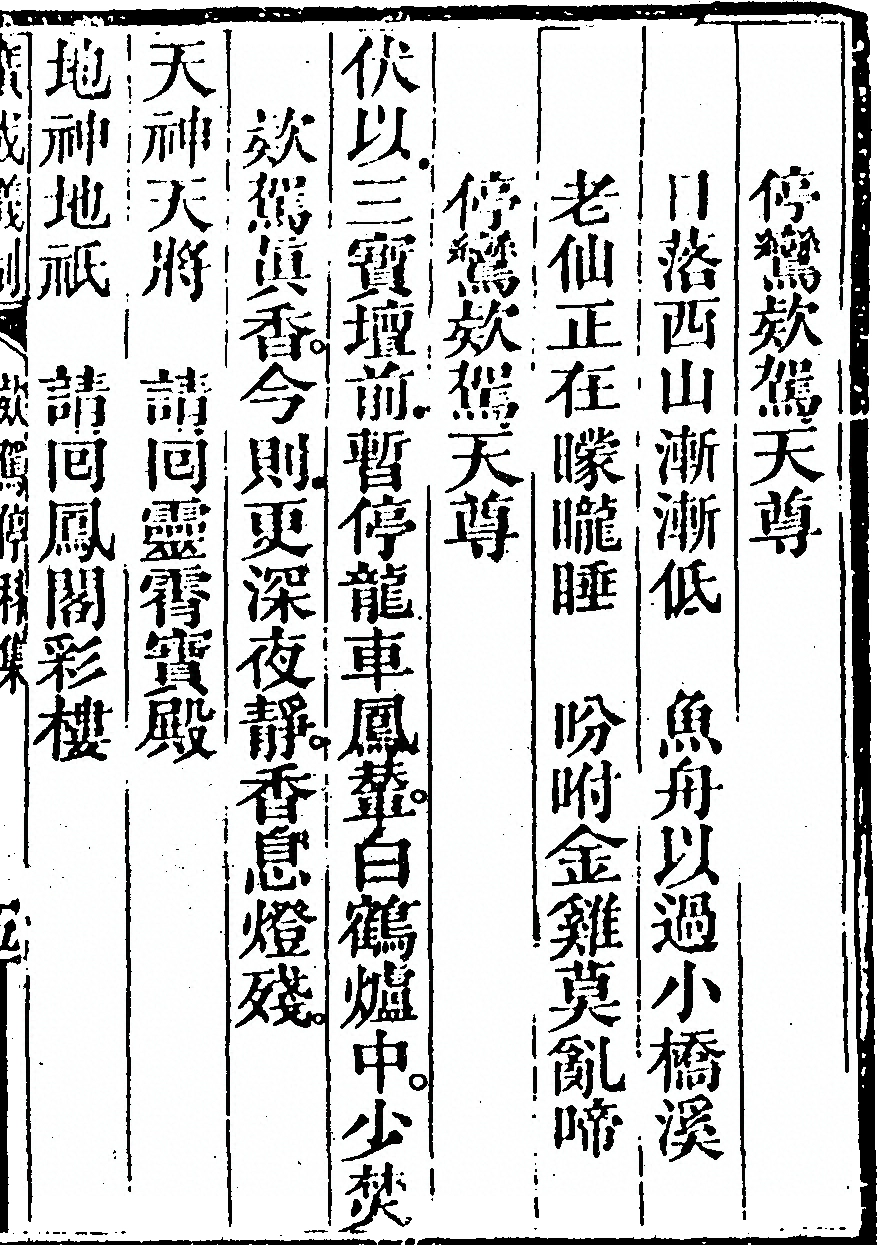 停鸞欵駕天尊
日落西山漸漸低 魚舟以過小橋溪
老仙正在矇矓睡 吩咐金雞莫亂啼
停鸞欵駕天尊
伏以三寶壇前暫停龍車鳳輦。白鶴爐中。少焚
欵駕眞香。今則更深夜靜。香息燈殘。
天神天將 請回靈霄寶殿
地神地祇 請回鳳閣彩樓
欵駕停科集